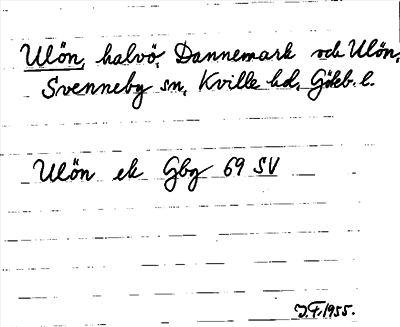 Ulön, halvö, Dannemark och Ulön,
Svenneby sn, Kville hd, Göteb. l.
Ulön ek Gbg 69 SV
J.F. 1955.